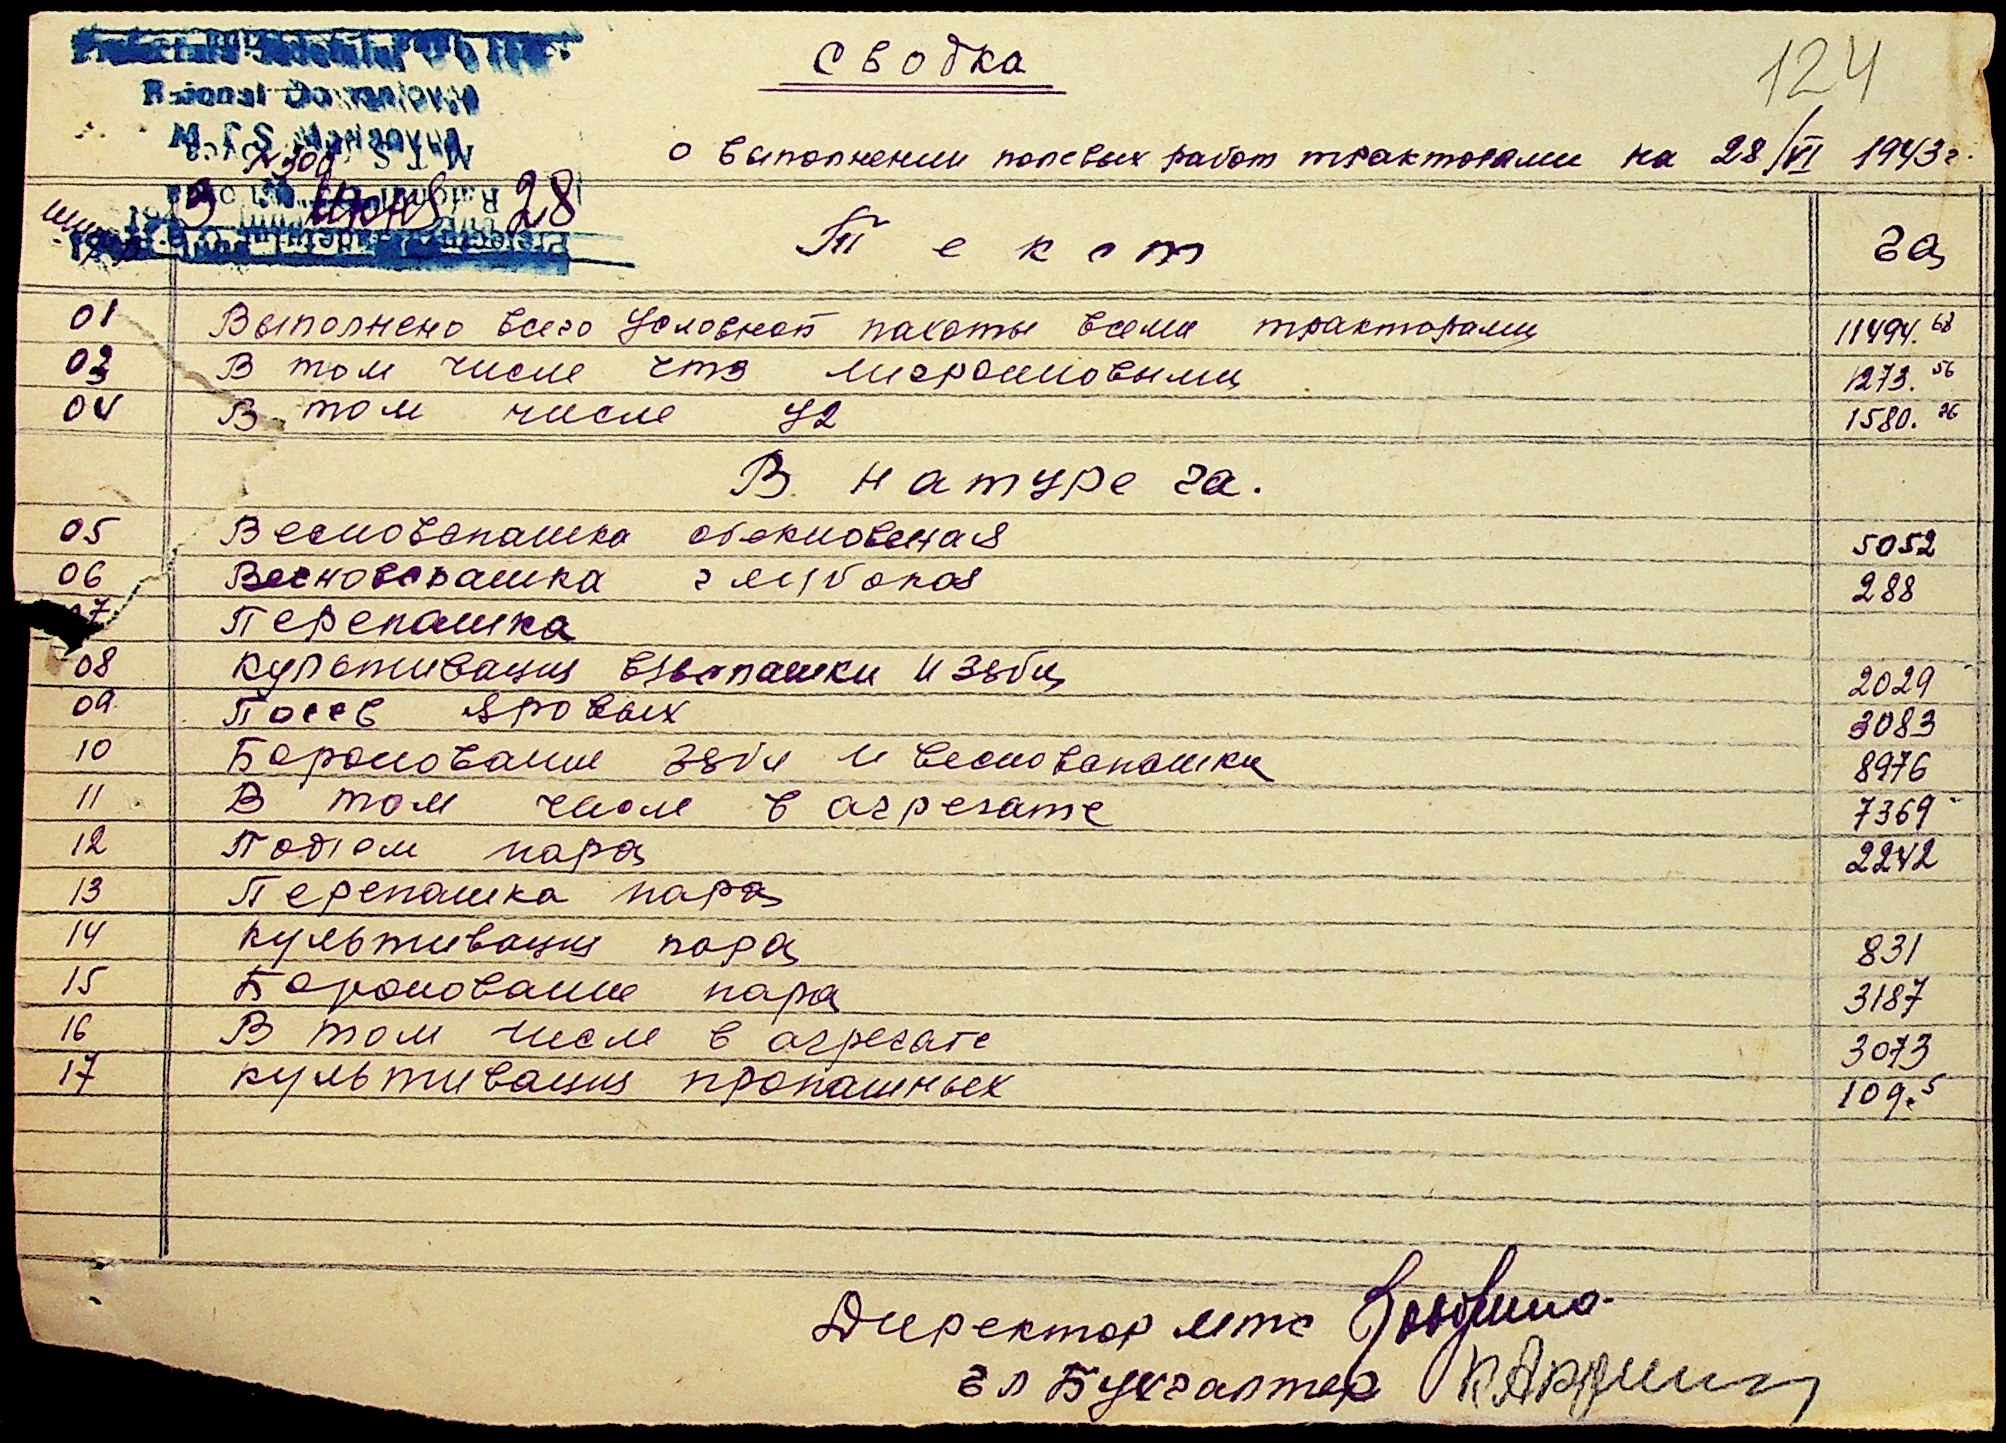 Сводка
124
о выполнении полевых работ тракторами на 28/VI 1943 г.
Raional
M.T.S.
N 300
Июня 28
Текст га
01 Выполнено всего условной пахоты всеми тракторами 11494.68
03 В том числе ЧТЗ лигроиновыми 1273.56
04 В том числе У2 1580.26
В натуре га.
05 Весновспашка обыкновеная 5052
06 Весновспашка глубокая 288
07 Перепашка
08 Культивация взвспашки и зяби 2029
09 Посев яровых 3083
10 Боронование зяби и весновспашки 8976
11 В том числе в агрегате 7369
12 Подъем пара 2242
13 Перепашка пара
14 Культивация пара 831
15 Боронование пара 3187
16 В том числе в агрегате 3073
17 Культивация пропашных 109.5
Директор мтс
Гл Бухгалтер